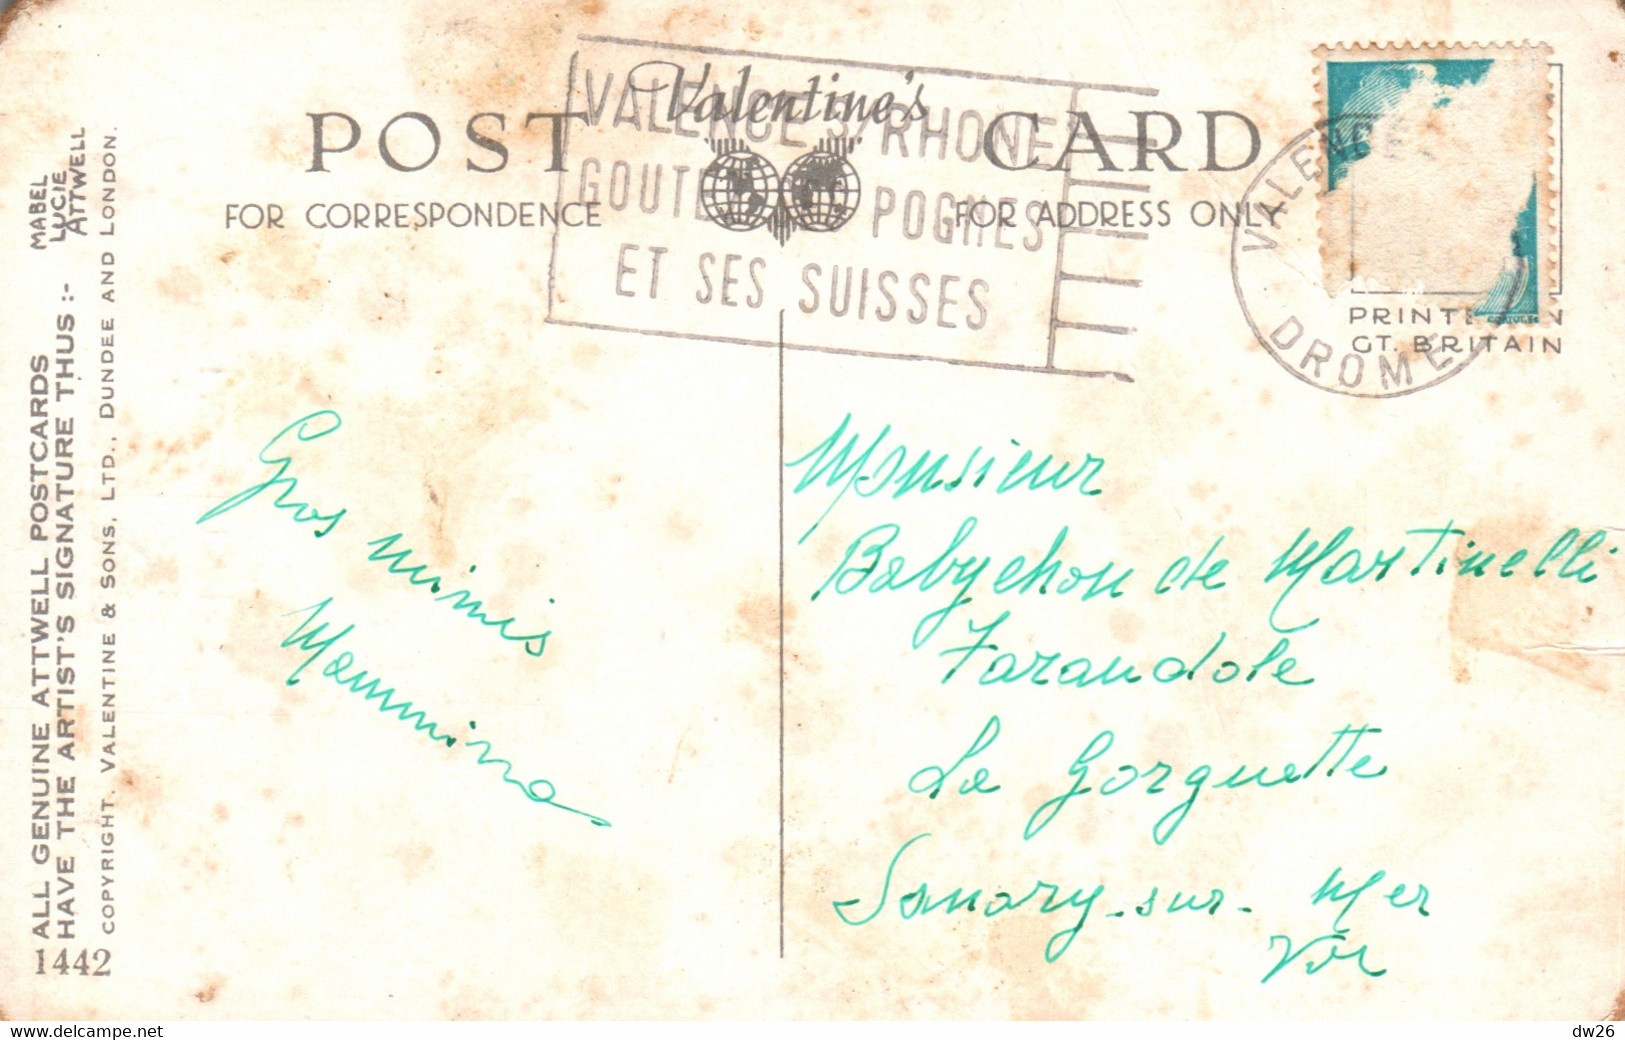 Valentine's
POST CARD
FOR CORRESPONDENCE
FOR ADDRESS ONLY
VALENCE S/RHONE
GOUTEZ POGNES
ET SES SUISSES
VALENCE
DROME
PRINTED IN
GT. BRITAIN
Gros mimis
Mammina
Monsieur
Babychon de Martinelli
Farandole
La Gorguette
Sanary-sur-Mer
Var
ALL GENUINE ATTWELL POSTCARDS
HAVE THE ARTIST'S SIGNATURE THUS :-
MABEL
LUCIE
ATTWELL
COPYRIGHT. VALENTINE & SONS, LTD., DUNDEE AND LONDON.
1442
https://www.delcampe.net
dw26